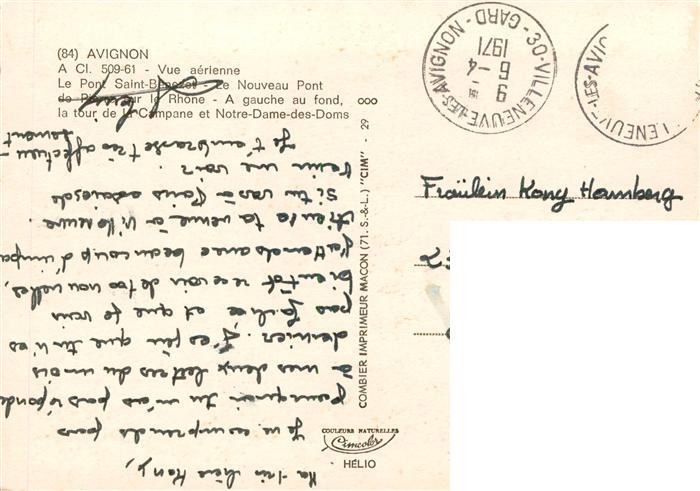 (84) AVIGNON
A Cl. 509-61 - Vue aérienne
Le Pont Saint-Bénezet - Le Nouveau Pont
de sur le Rhône - A gauche au fond,
la tour de la Campane et Notre-Dame-des-Doms
30 - VILLENEUVE-LES-AVIGNON - GARD
9 H
6 - 4
1971
LENEUVE-LES-AVIG
Fräulein Kony Hamberg
COMBIER IMPRIMEUR MACON (71. S.-&-L.) "CIM" - 29
COULEURS NATURELLES
Cimcolor
HÉLIO
Ma très chère Kony,
Je ne comprends pas
pourquoi tu n'as pas réponde
à mes deux lettres du mois
dernier. J'espère que tu n'es
pas fachée et que je vais
bientôt recevoir de tes nouvelles,
J'attends avec beaucoup d'impa-
tience ta venue à Villeneuve.
Si tu vas à Paris essaies de
venir me voir.
Je t'embrasse très affectueu-
sement